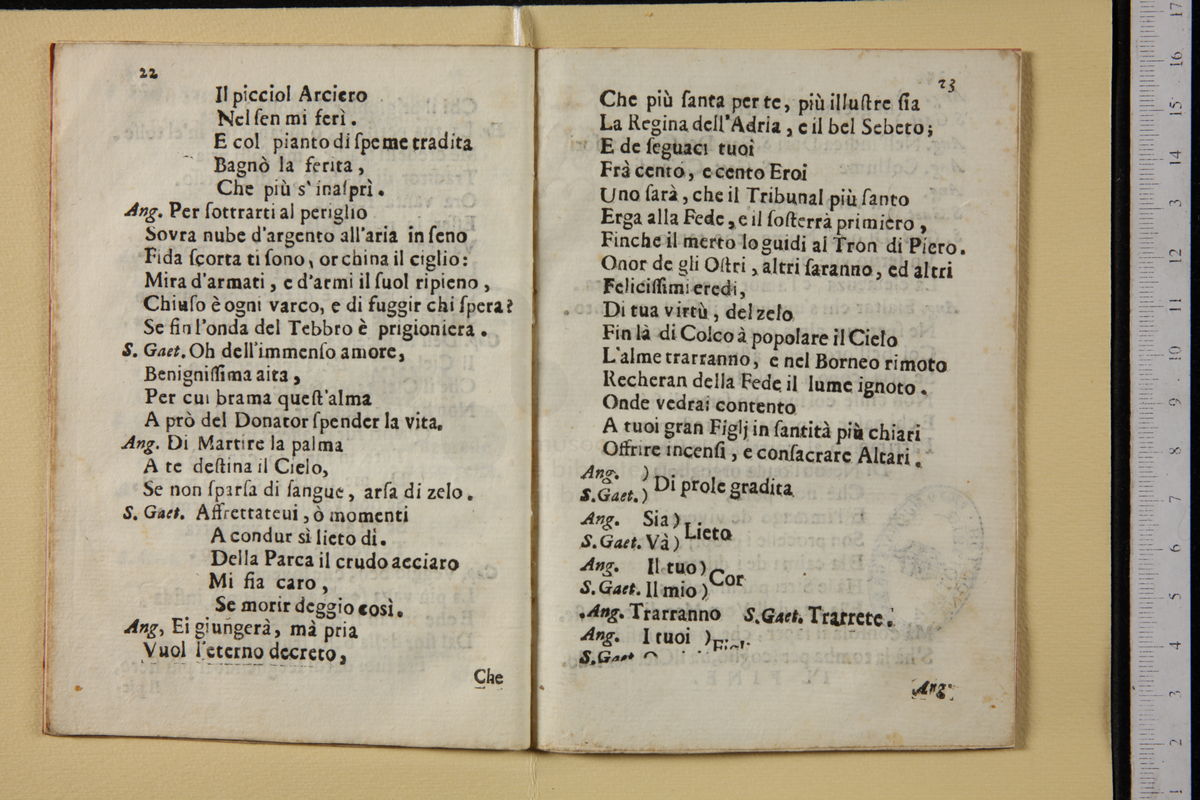 22
Il picciol Arciero
Nel sen mi ferì.
E col pianto di speme tradita
Bagnò la ferita,
Che più s'inasprì.
Ang. Per sottrarti al periglio
Sovra nube d'argento all'aria in seno
Fida scorta ti sono, or china il ciglio:
Mira d'armati, e d'armi il suol ripieno,
Chiuso è ogni varco, e di fuggir chi spera?
Se fin l'onda del Tebbro è prigioniera.
S. Gaet. Oh dell'immenso amore,
Benignissima aita,
Per cui brama quest'alma
A prò del Donator spender la vita.
Ang. Di Martire la palma
A te destina il Cielo,
Se non sparsa di sangue, arsa di zelo.
S. Gaet. Affrettateui, ò momenti
A condur sì lieto dì.
Della Parca il crudo acciaro
Mi sia caro,
Se morir deggio così.
Ang, Ei giungerà, mà pria
Vuol l'eterno decreto,
Che
23
Che più santa per te, più illustre sia
La Regina dell'Adria, e il bel Sebeto;
E de seguaci tuoi
Frà cento, e cento Eroi
Uno sarà, che il Tribunal più santo
Erga alla Fede, e il sosterrà primiero,
Finche il merto lo guidi al Tron di Piero.
Onor de gli Ostri, altri saranno, ed altri
Felicissimi eredi,
Di tua virtù, del zelo
Fin là di Colco à popolare il Cielo
L'alme trarranno, e nel Borneo rimoto
Recheran della Fede il lume ignoto.
Onde vedrai contento
A tuoi gran Figlj in santità più chiari
Offrire incensi, e consacrare Altari.
Ang. )
S.Gaet. ) Di prole gradita
Ang. Sia )
S.Gaet. Và ) Lieto
Ang. Il tuo )
S.Gaet. Il mio ) Cor
Ang. Trarranno S.Gaet. Trarrete.
Ang. I tuoi )
S.Gaet
Ang.